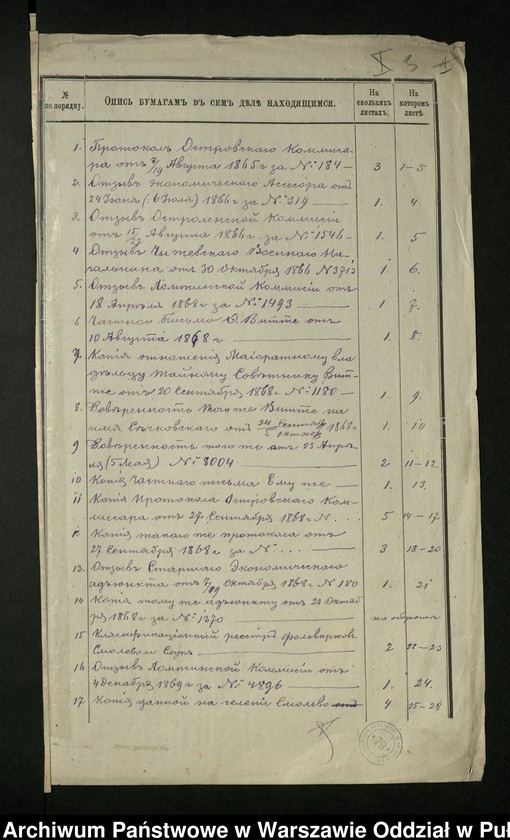 № по порядку.
Опись бумагамъ въ семъ дѣлѣ находящимся.
На сколькихъ листахъ.
На которомъ листѣ.
1. Протоколъ Островскаго Коммиса-
ра отъ 7/19 Августа 1865 г за № 184 — 3 1–3
2. Отзывъ Экономическаго Ассесора отъ
24 Іюня (6 Іюля) 1866 г за № 319 — 1. 4
3. Отзывъ Остроленской Коммисіи
отъ 15/27 Августа 1866 г. за № 1546 – 1. 5
4 Отзывъ Чижевскаго Военнаго На-
чальника отъ 30 Октября 1866 № 3713 1. 6.
5. Отзывъ Ломжинской Коммисіи отъ
18 Апрѣля 1868 г за № 1493 — 1 7.
6 Частное Письмо Ѳ. Витте отъ
10 Августа 1868 г — 1. 8.
7. Копія отношенія Маіоратному вла
дѣльцу Тайному Совѣтнику Вит-
те отъ 20 Сентября 1868 г № 1180 — 1. 9.
8. Довѣренность того же Витте на
имя отъ 24 Сентября / Октября 1868 г 1. 10
9 Довѣренность того же отъ 23 Апрѣ-
ля (5 Мая) № 8004 2 11–12
10 Копія Частнаго письма Ему же — 1. 13.
11 Копія Протокола Островскаго Ком-
миссара отъ 27 Сентября 1868 г № . . . 5 14–17
12 Копія такого же протокола отъ
27 Сентября 1868 г за № . . . — 3 18–20
13. Отзывъ Старшаго Экономическаго
адъюнкта отъ 7/19 Октября 1868 г № 180 1. 21
14 Копія тому же адъюнкту отъ 21 Октяб
ря 1868 г за № 1370 — на оборотѣ
15 Классификаціонный реестръ фольварковъ
Смолево и — 2 22–23
16 Отзывъ Ломжинской Коммисіи отъ
4 Декабря 1869 г за № 4896 — 1. 24.
17 Копія данной на селеніи Смолево 4 25–28
Archiwum Państwowe w Warszawie Oddział w Puł